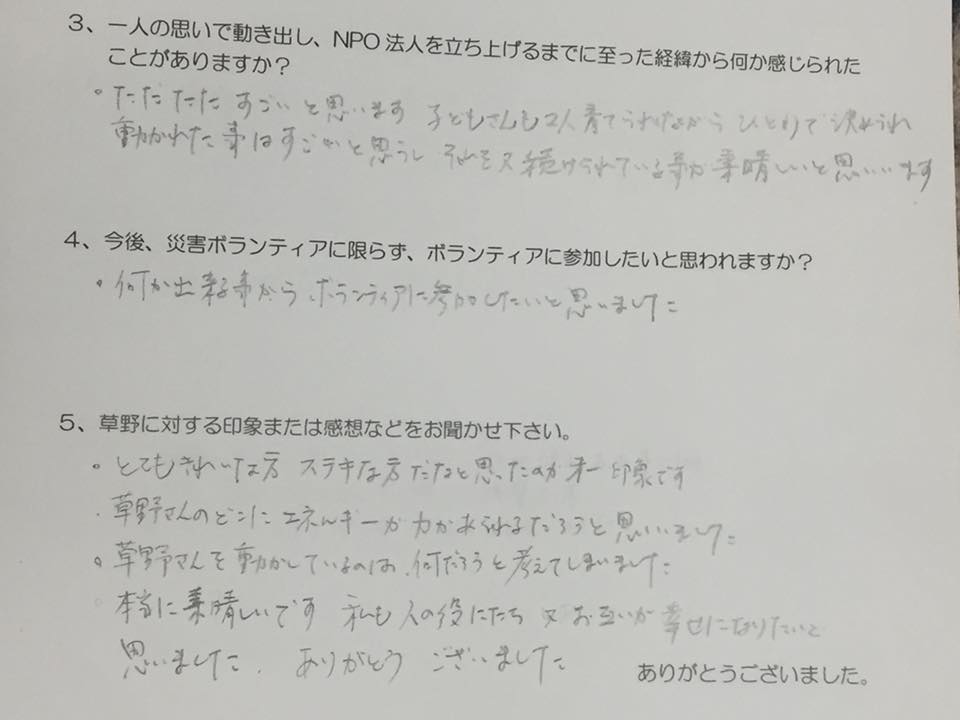 3、一人の思いで動き出し、NPO法人を立ち上げるまでに至った経緯から何か感じられた
ことがありますか？
・ただただ すごいと思います 子どもさんも2人育てられながら ひとりで決められ
動かれた事はすごいと思うし それを又続けられている事が素晴しいと思いいます
4、今後、災害ボランティアに限らず、ボランティアに参加したいと思われますか？
・何か出来る事から ボランティアに参加したいと思いました
5、草野に対する印象または感想などをお聞かせ下さい。
・とてもきれいな方 ステキな方だなと思ったのが オ一印象です
・草野さんのどこに エネルギーが力が あられるだろうと思いいました
・草野さんを動かしているのは、何だろうと考えてしまいました
本当に素晴しいです 私も人の役にたち 又お互いが幸せになりたいと
思いました。ありがとう ございました
ありがとうございました。